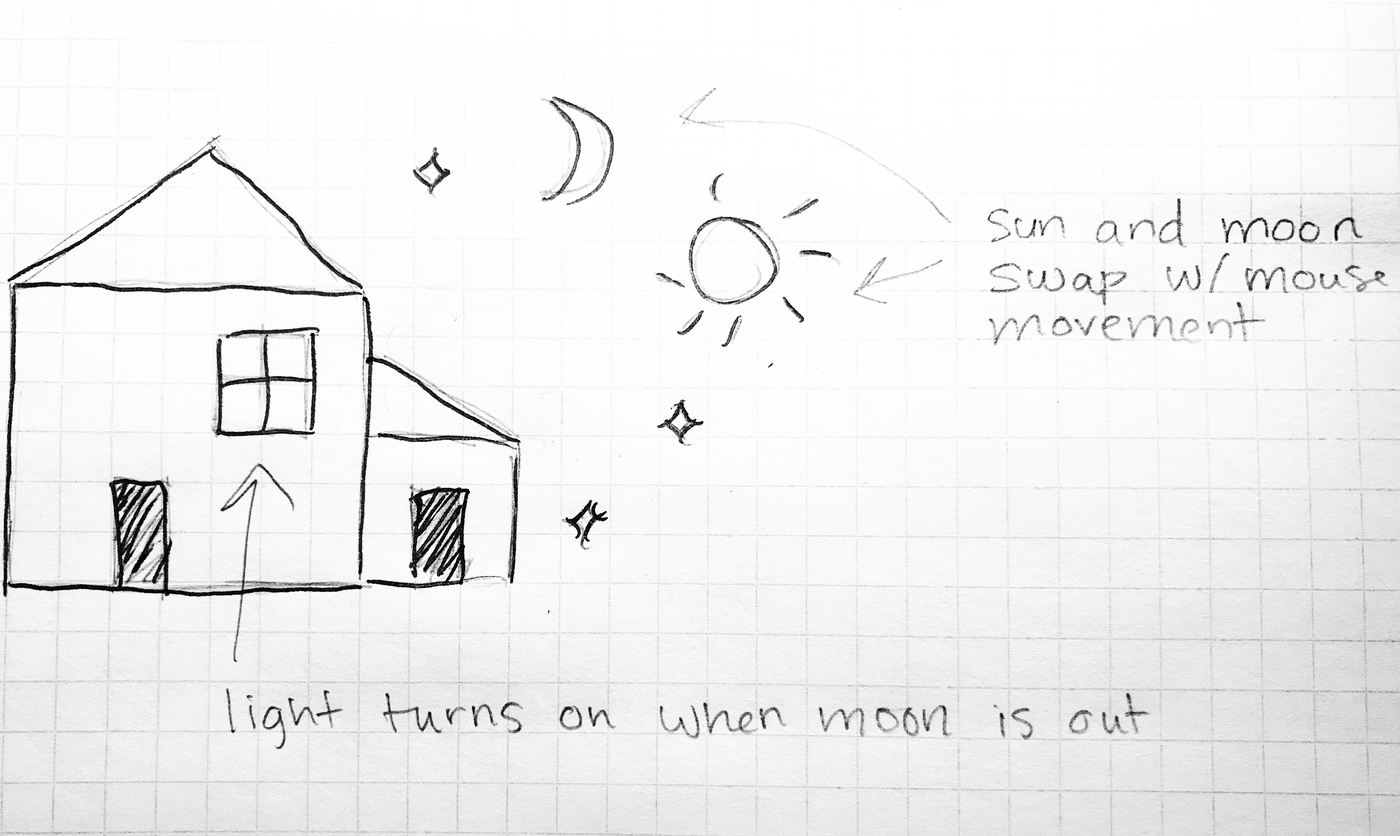 sun and moon
swap w/ mouse
movement
light turns on when moon is out